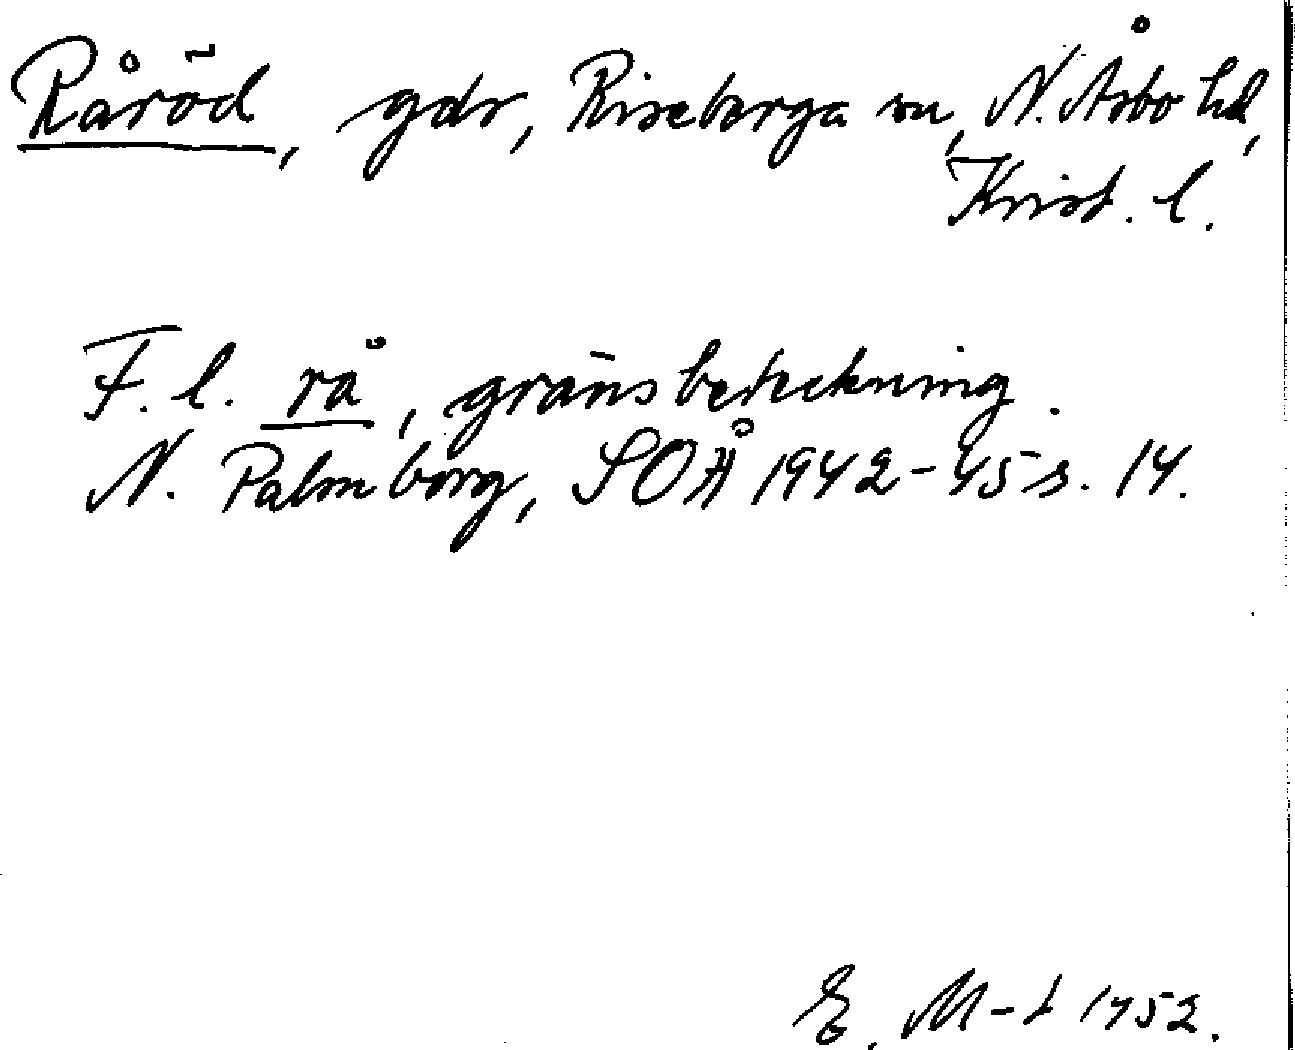 Råröd, gdr, Riseberga sn, N. Åsbo hd,
Krist. l.
F. l. rå, gränsbeteckning.
N. Palmborg, SOÅ 1942-45 s. 14.
E. M-t 1952.